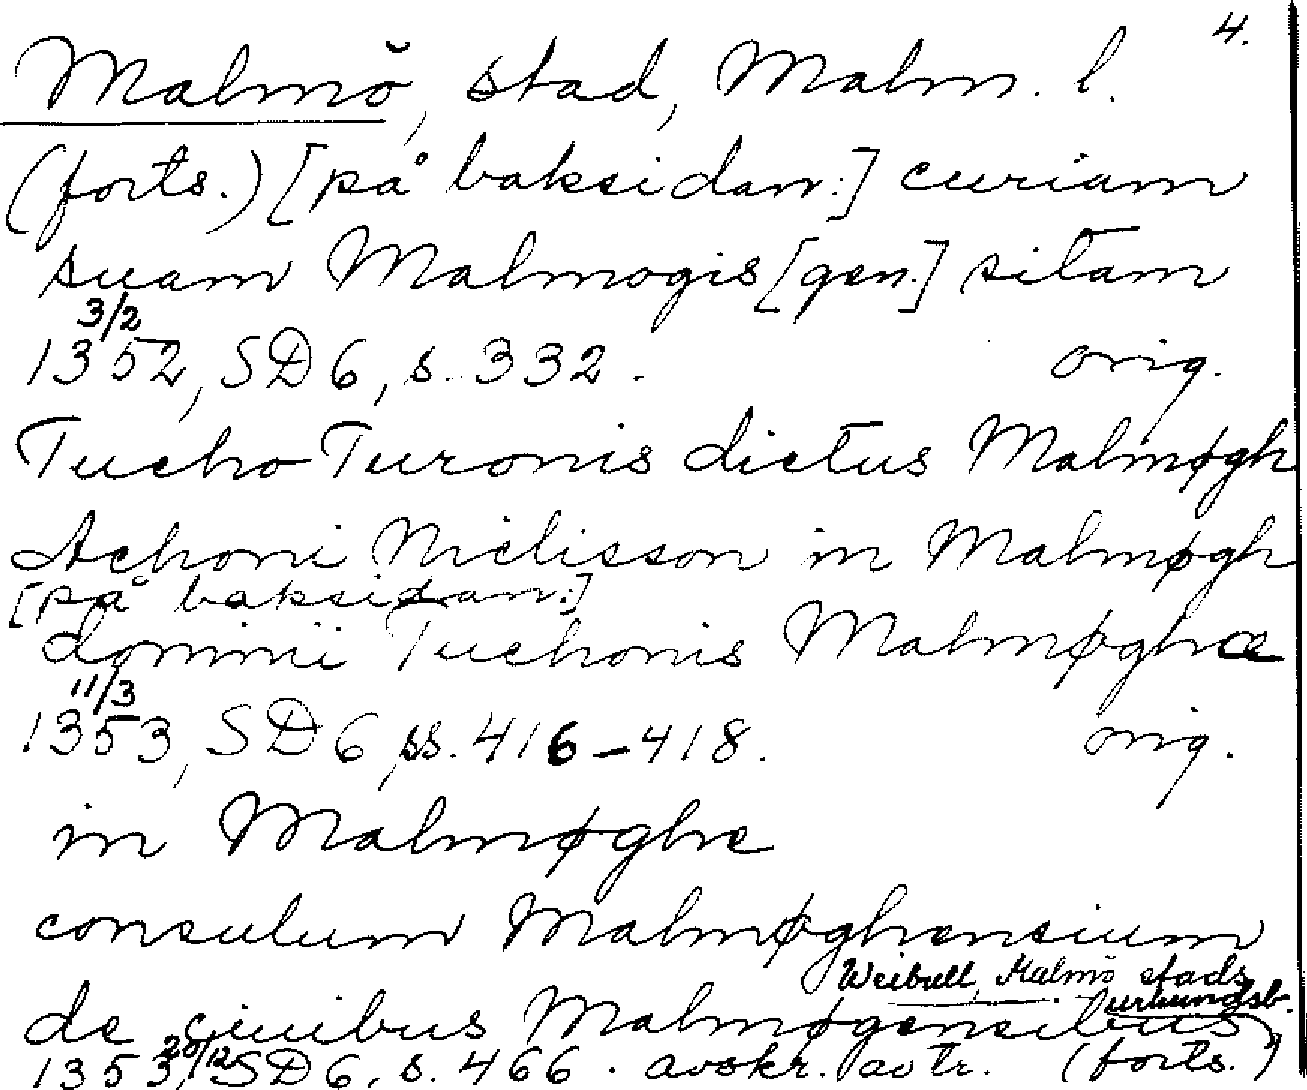 4.
Malmö, stad, Malm. l.
(forts.) [på baksidan:] curiam
suam Malmogis [gen.] sitam
3/2
1352, SD 6, s. 332. orig.
Tucho Turonis dictus Malmøgh
Achoni Niclisson in Malmøgh
[på baksidan:]
dominii Tuchonis Malmøghæ
11/3
1353, SD 6, ss. 416-418. orig.
in Malmøghe
consulum Malmøghensium
Weibull, Malmö stads
urkundsb.
de ciuibus Malmøgensibus
20/12
1353, SD 6, s. 466. avskr. av tr. (forts.)